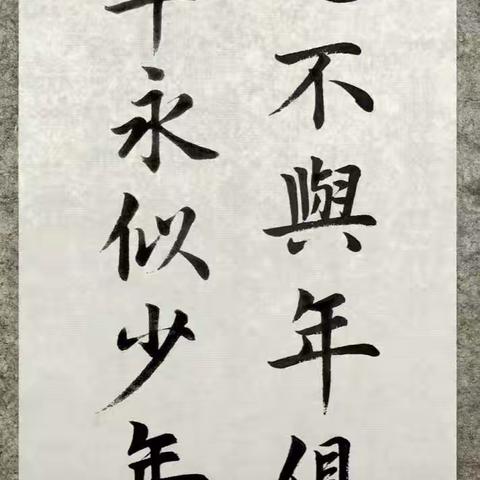 不與年俱
永似少年